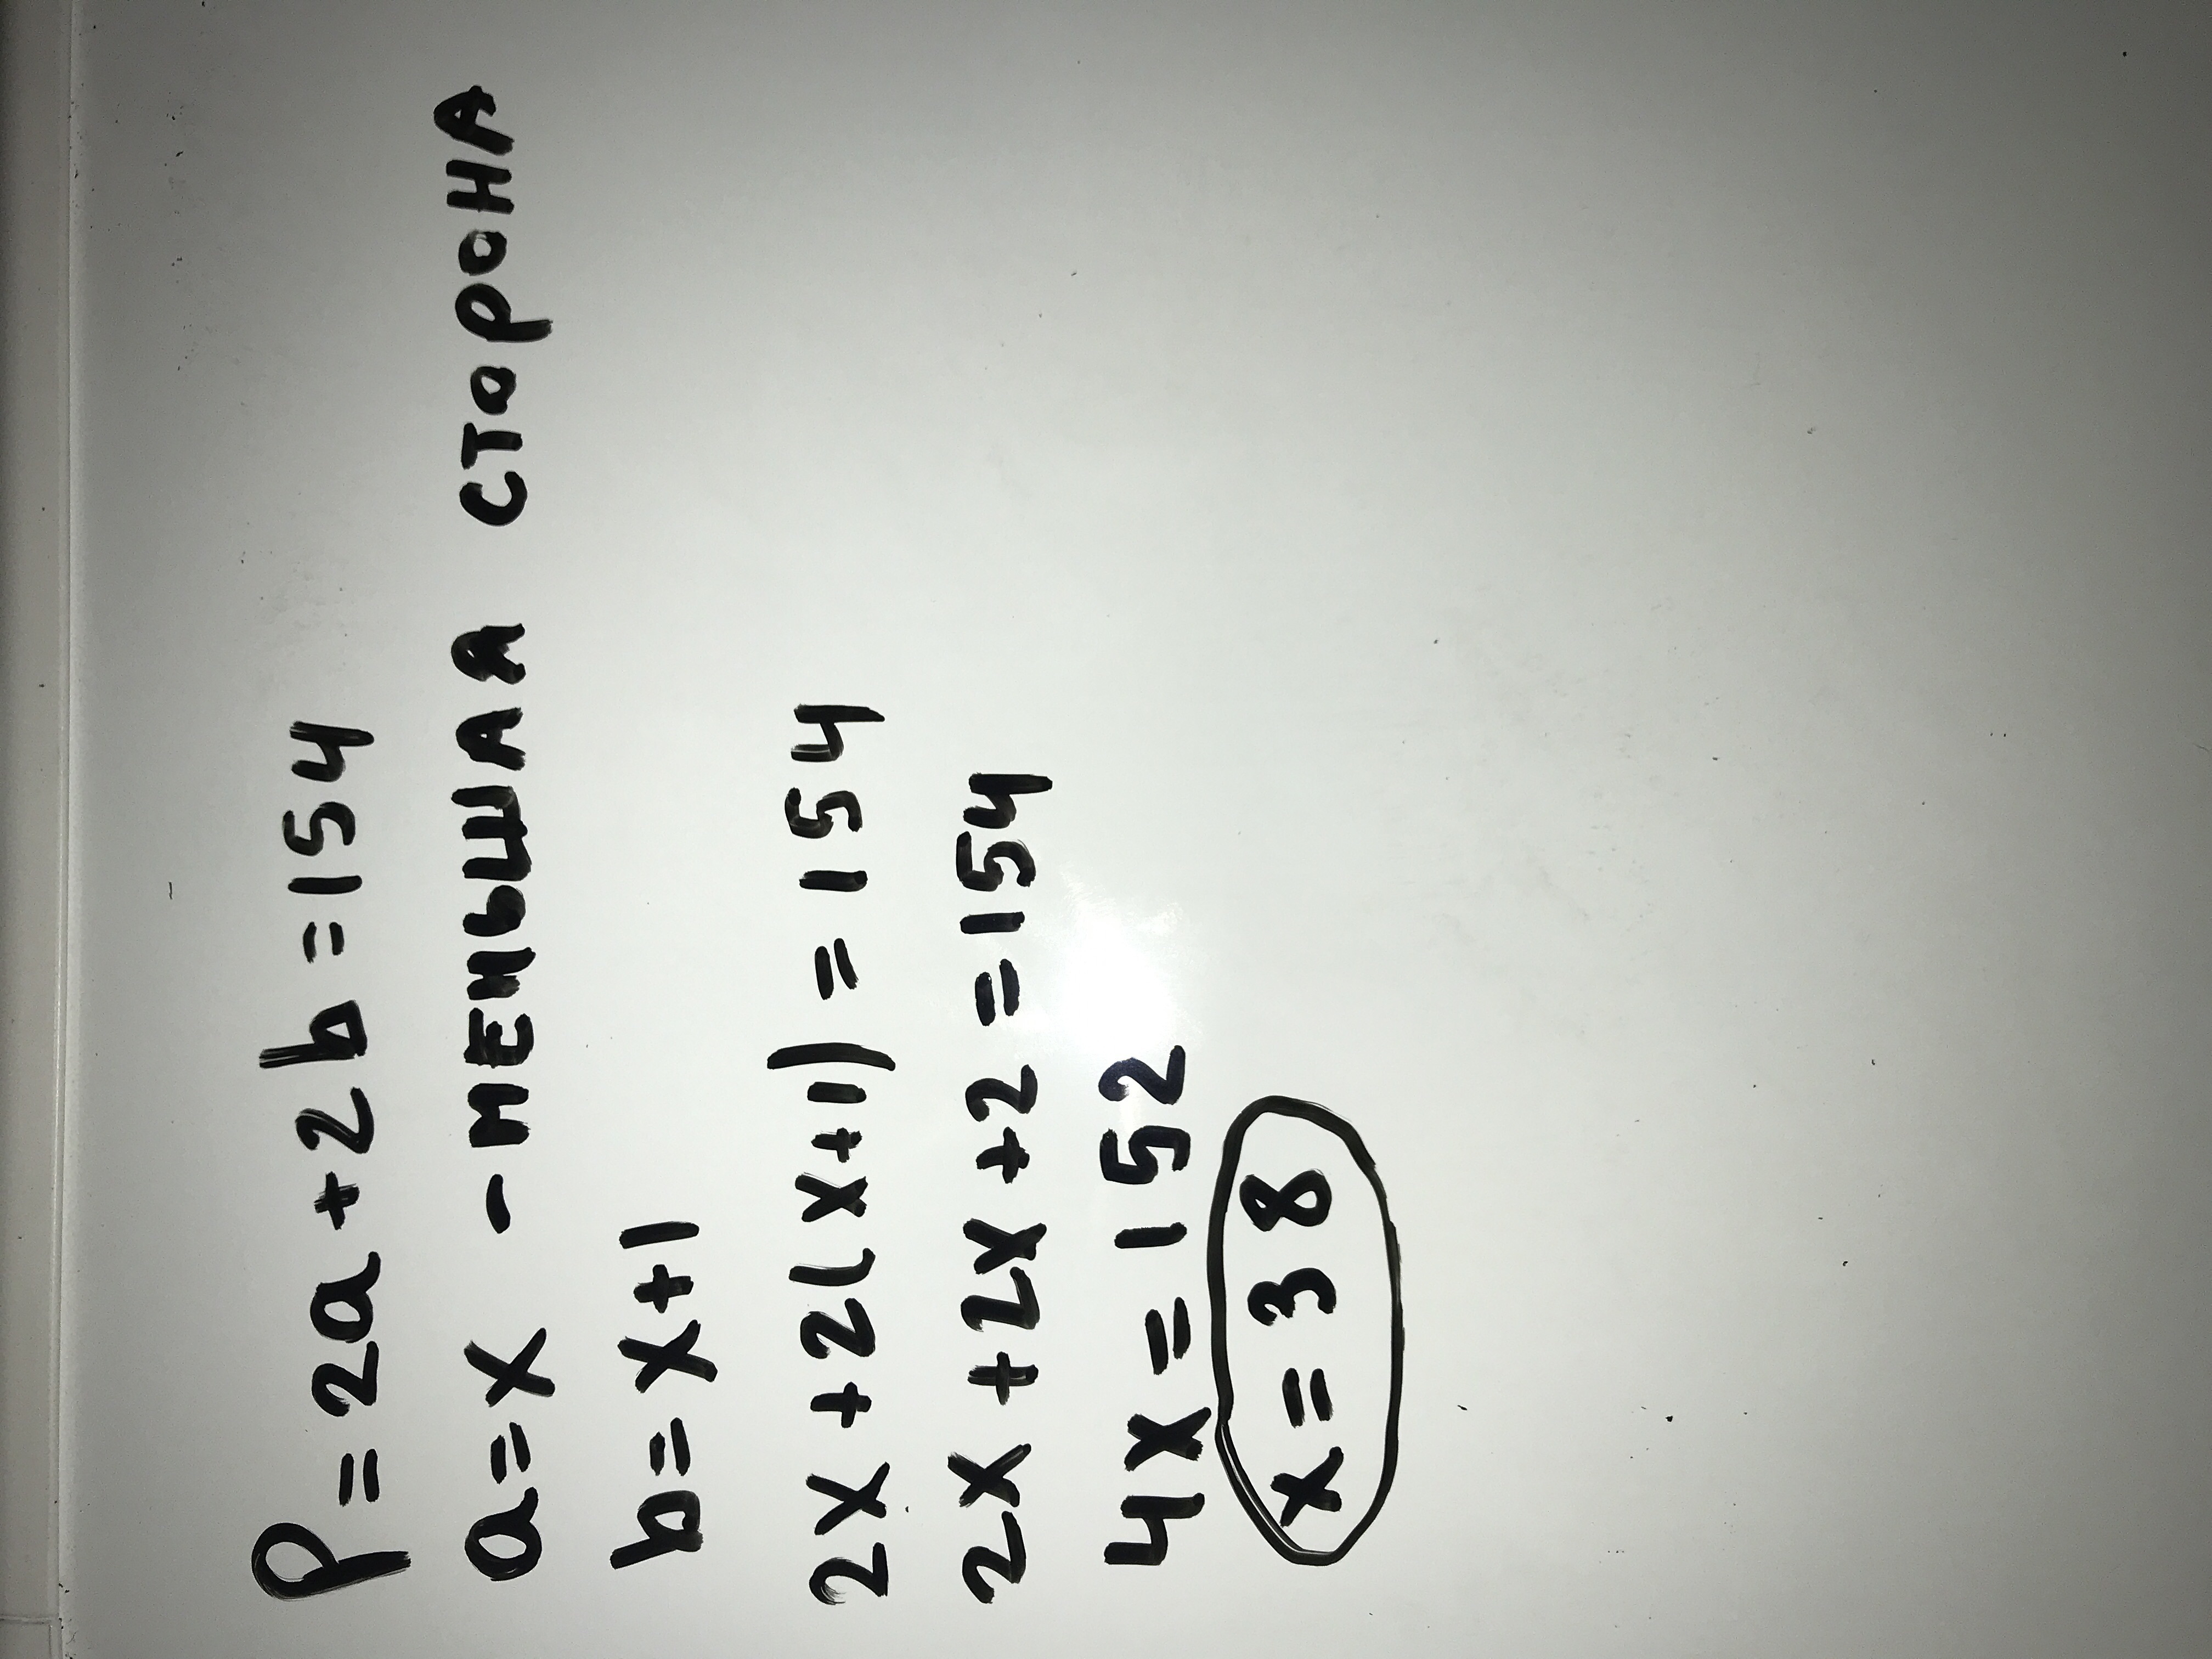 P = 2a + 2b = 154
a = x - МЕНЬШАЯ СТОРОНА
b = x + 1
2x + 2(x+1) = 154
2x + 2x + 2 = 154
4x = 152
x = 38